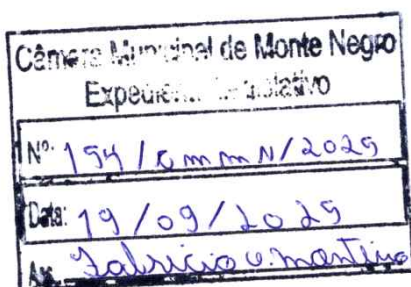 Câmara Municipal de Monte Negro
Expediente Legislativo
Nº: 194 / CMMN/2025
Data: 19/09/2025
Ass. Fabricio